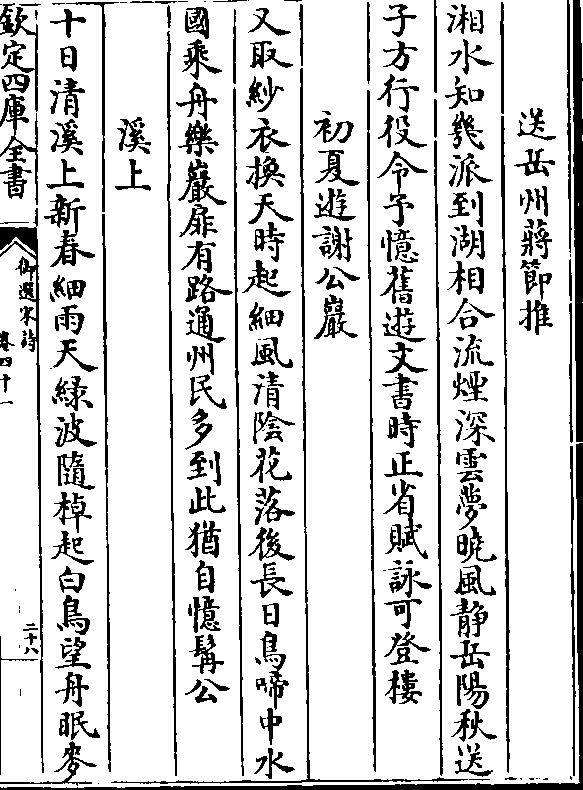 送岳州蔣節推
湘水知幾派到湖相合流煙深雲夢曉風靜岳陽秋送
子方行役令予憶舊遊文書時正省賦詠可登樓
初夏遊謝公巖
又取紗衣換天時起細風清陰花落後長日鳥啼中水
國乘舟樂巖扉有路通州民多到此猶自憶髯公
溪上
十日清溪上新春細雨天緑波隨棹起白鳥望舟眠麥
欽定四庫全書
御選宋詩
卷四十一
二十八